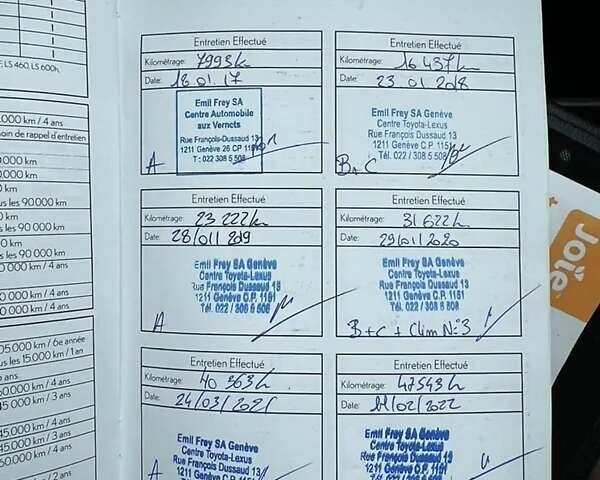 F, LS 460, LS 600h,
.000 km / 4 ans
oin de rappel d'entretien
us les 90 000 km
es 90 000 km
000 km / 4 ans
05 000 km / 6e année
us les 15 000 km / 1 an
45 000 km / 3 ans
45.000 km / 3 ans
60.000 km / 4 ans
Entretien Effectué
Kilométrage: 7993 k
Date: 18.01.17
Emil Frey SA
Centre Automobile
aux Vernets
Rue François-Dussaud 13
1211 Genève 26 CP
T : 022 / 308 5 508
A
Entretien Effectué
Kilométrage: 16 437 k
Date: 23 01 2018
Emil Frey SA Genève
Centre Toyota-Lexus
Rue François Dussaud 13
1211 Genève C.P. 1151
Tél. 022 / 308 5 508
B + C
Entretien Effectué
Kilométrage: 23 222 k
Date: 28/01/2019
Emil Frey SA Genève
Centre Toyota-Lexus
Rue François Dussaud 13
1211 Genève C.P. 1151
Tél. 022 / 308 5 508
A
Entretien Effectué
Kilométrage: 31 622 k
Date: 29/01/2020
Emil Frey SA Genève
Centre Toyota-Lexus
Rue François Dussaud 13
1211 Genève C.P. 1151
Tél. 022 / 308 5 508
B + C + Clim N°3
Entretien Effectué
Kilométrage: 40 363 k
Date: 24/03/2021
Emil Frey SA Genève
Centre Toyota-Lexus
Rue François Dussaud 13
1211 Genève C.P. 1151
Entretien Effectué
Kilométrage: 47543 k
Date: 11/02/2022
Emil Frey SA Genève
Centre Toyota-Lexus
Rue François Dussaud 13
1211 Genève C.P. 1151
Joie